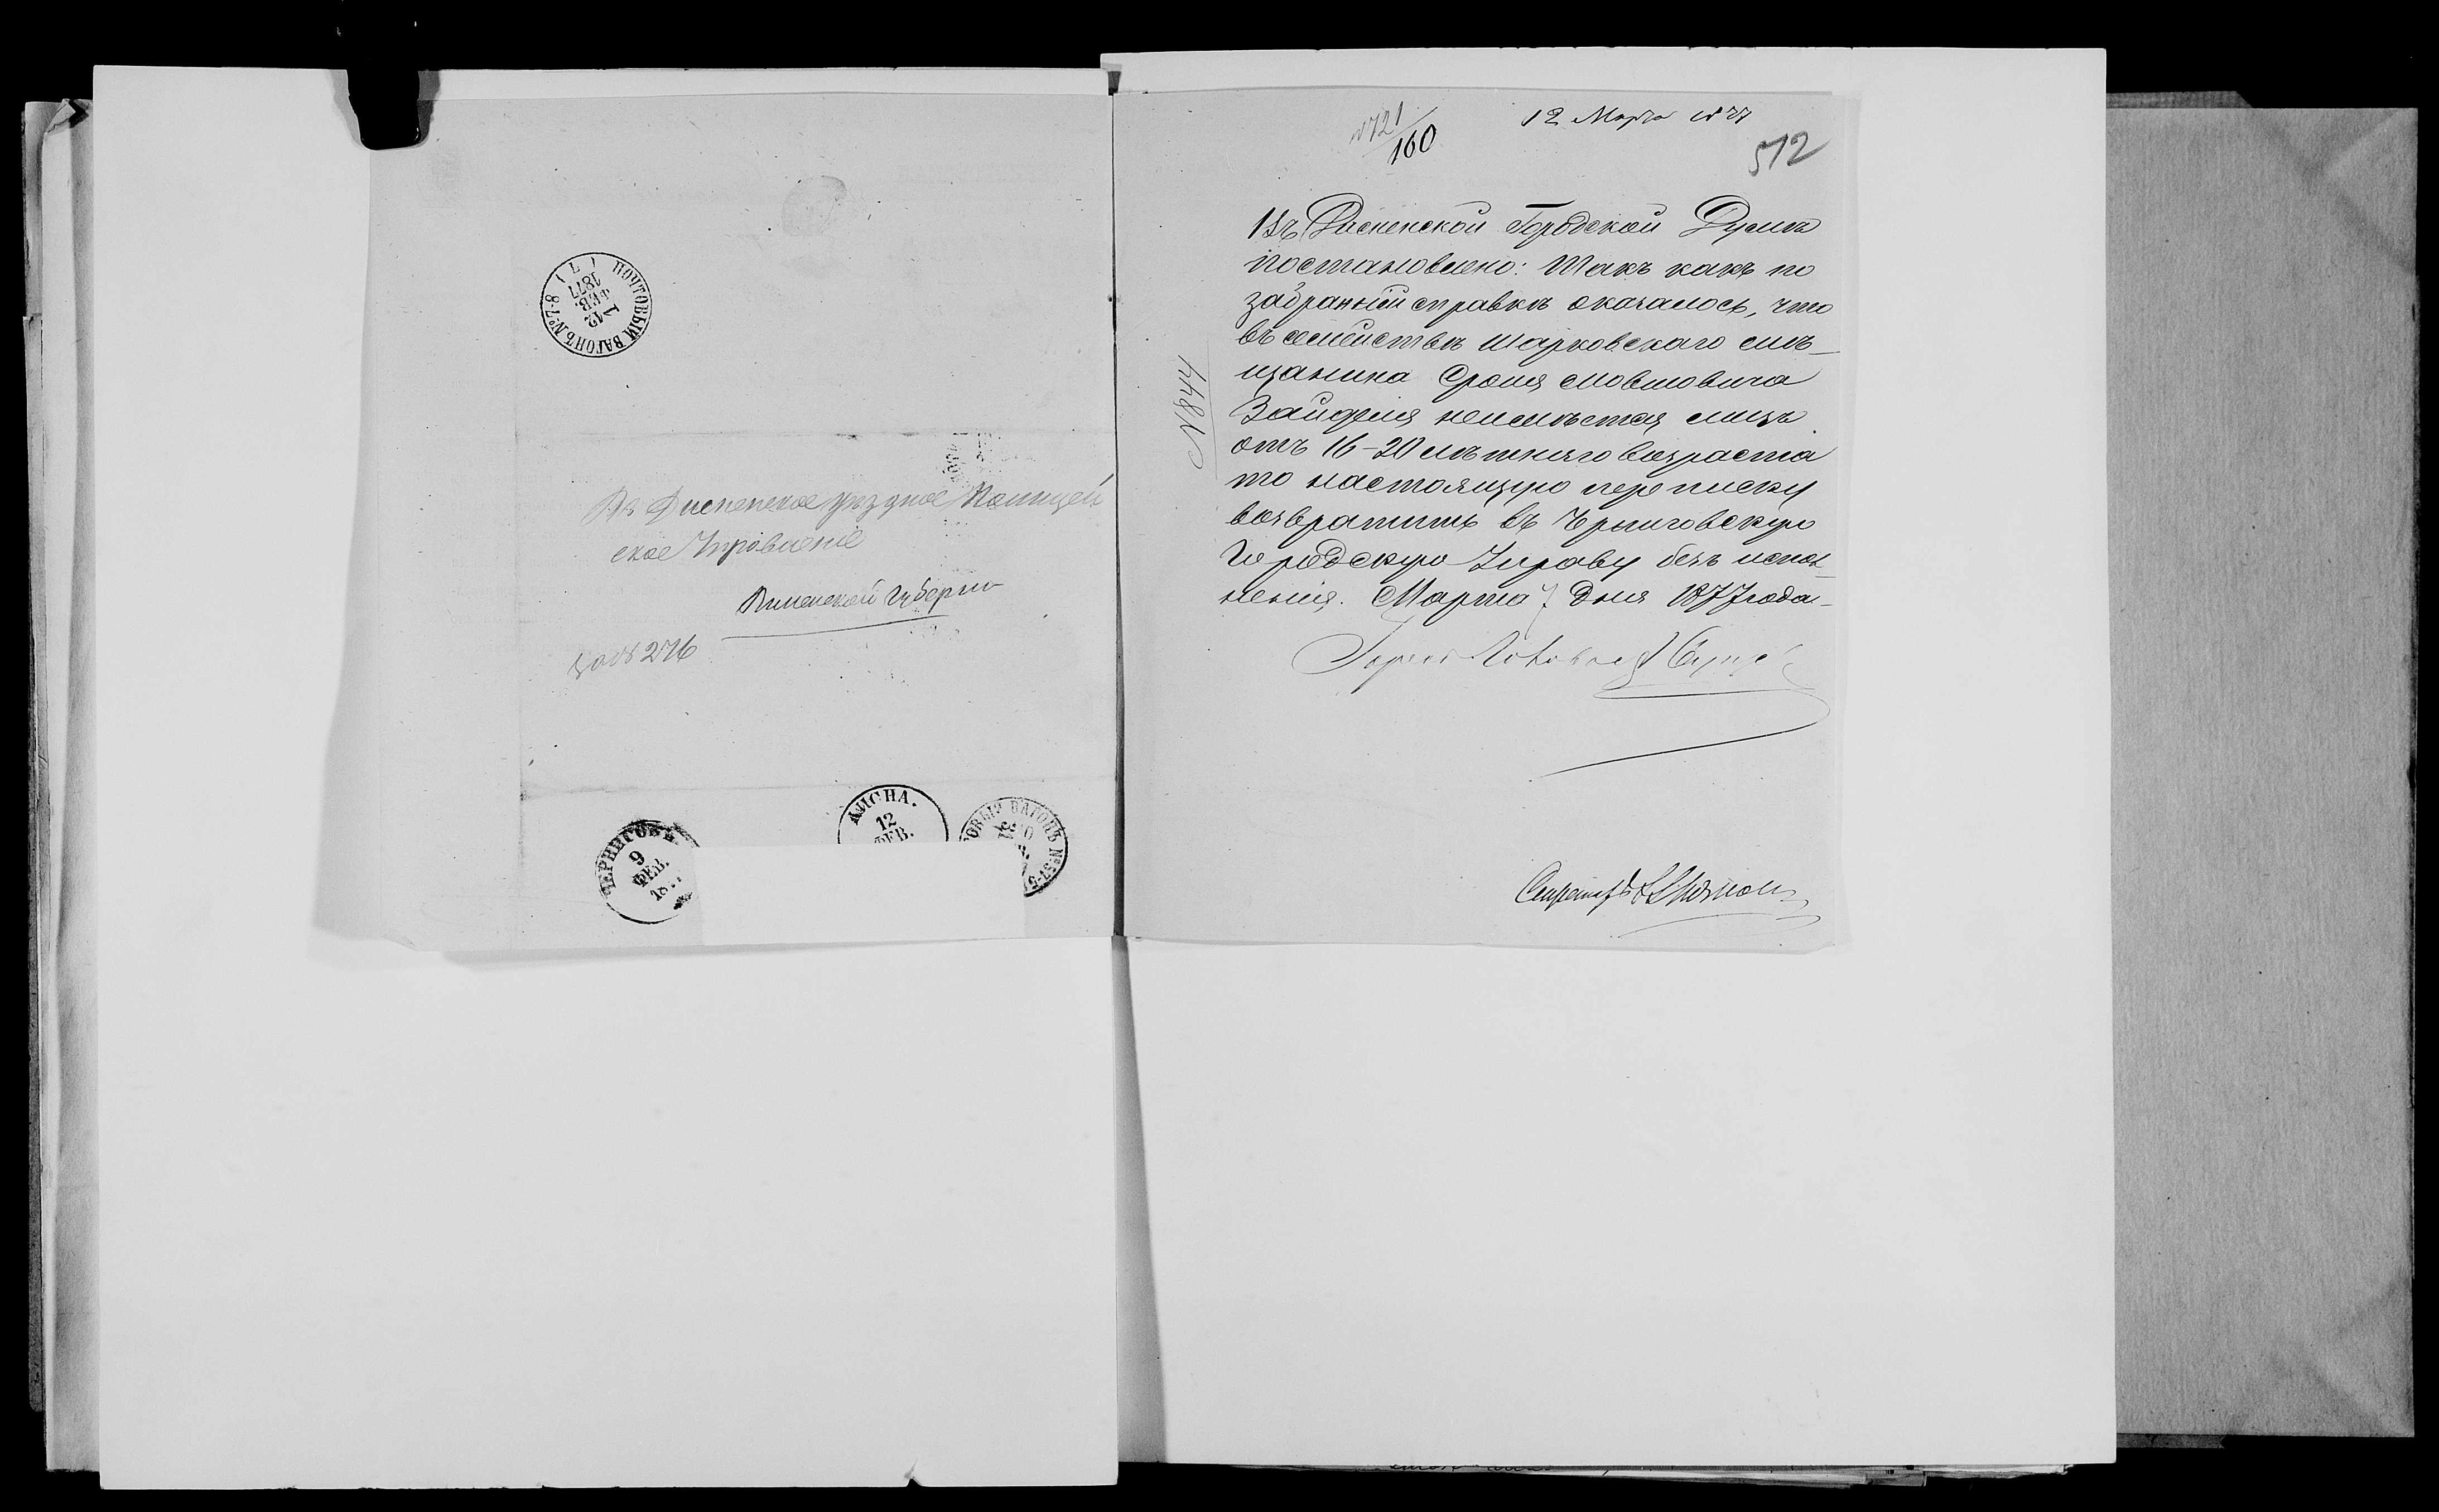 ПОЧТОВЫЙ ВАГОНЪ № 7-8 (1)
12
ФЕВ.
1877
Въ Дисненское уѣздное Полицей
ское Управленіе
Виленской Губерніи
276
ЧЕРНИГОВЪ
9
ФЕВ.
ДИСНА.
12
ФЕВ.
ВАГОНЪ №
№721/160
12 Марта 1877
512
№844
Въ Дисненской Городской Думѣ
постановлено: Такъ какъ по
забранной справкѣ оказалось, что
въ семействѣ Шарковскаго мѣ-
щанина Сроля Мовшовича
Зайделя неимѣется лицъ
отъ 16-20 лѣтняго возраста
то настоящую переписку
возвратить въ Черниговскую
Городскую Управу безъ испол-
ненія. Марта 7 дня 1877 года
Город Голова
Секретарь